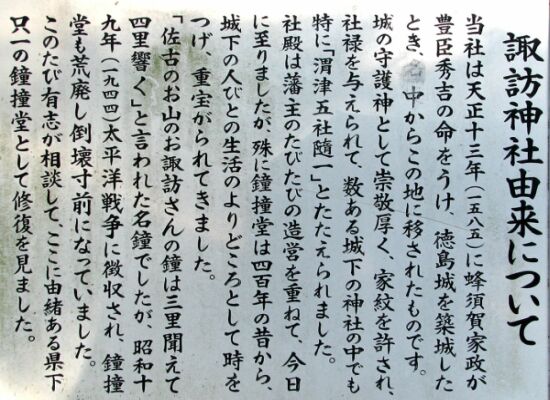 諏訪神社由来について
当社は天正十三年(一五八五)に蜂須賀家政が
豊臣秀吉の命をうけ、徳島城を築城した
とき、名 中からこの地に移されたものです。
城の守護神として崇敬厚く、家紋を許され、
社禄を与えられて、数ある城下の神社の中でも
特に「渭津五社随一」とたたえられました。
社殿は藩主のたびたびの造営を重ねて、今日
に至りましたが、殊に鐘撞堂は四百年の昔から、
城下の人びとの生活のよりどころとして時を
つげ、重宝がられてきました。
「佐古のお山のお諏訪さんの鐘は三里聞えて
四里響く」と言われた名鐘でしたが、昭和十
九年(一九四四)太平洋戦争に徴収され、鐘撞
堂も荒廃し倒壊寸前になっていました。
このたび有志が相談して、ここに由緒ある県下
只一の鐘撞堂として修復を見ました。